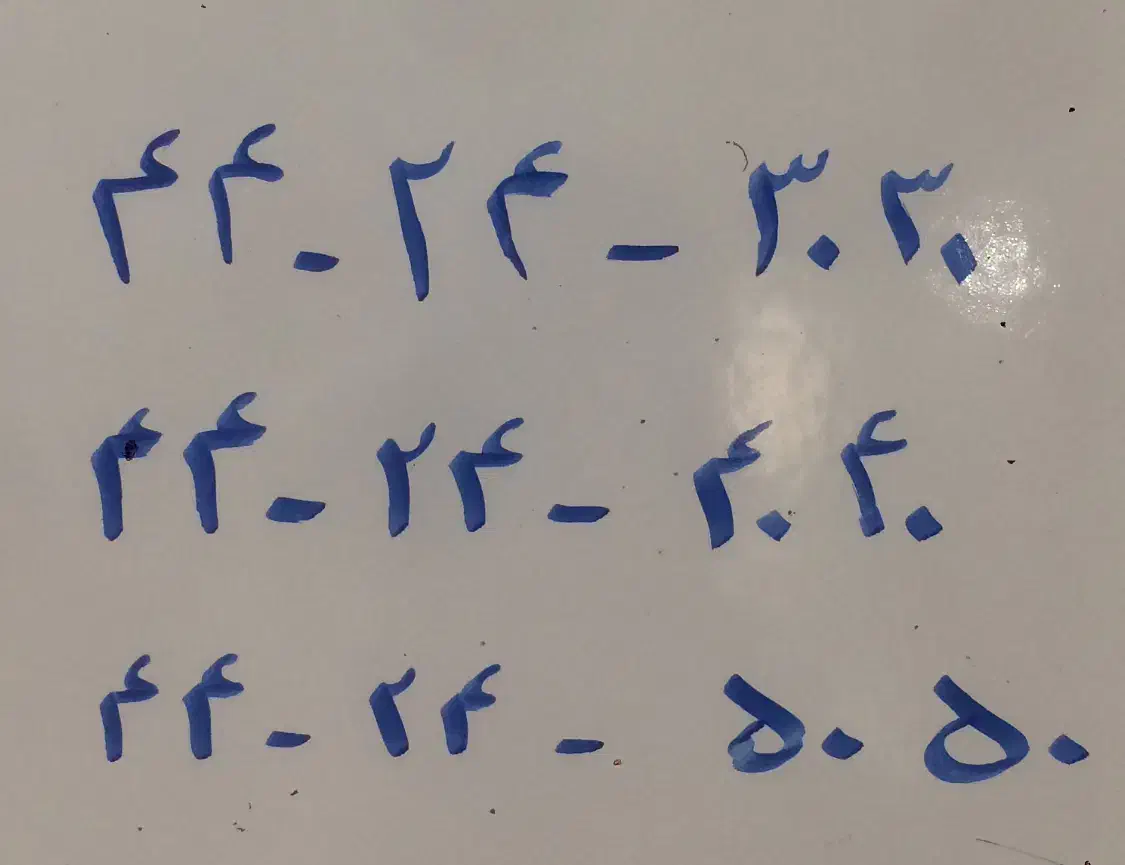 ۴۴-۲۴-۳۰۳۰
۴۴-۲۴-۴۰۴۰
۴۴-۲۴-۵۰۵۰